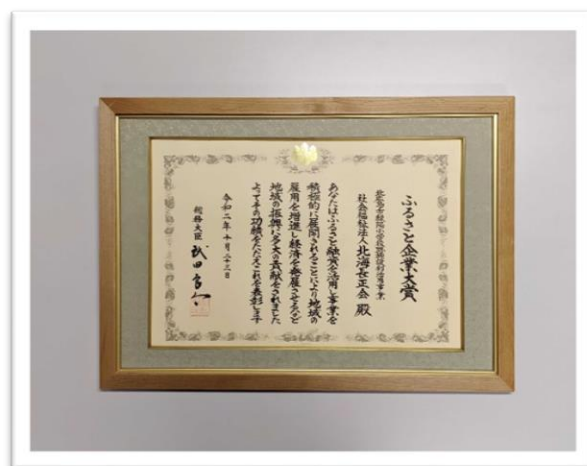 ふるさと企業大賞
社会福祉法人北海長正会 殿
あなたはふるさと融資を活用し事業を
積極的に展開されることにより地域の
雇用を増進し経済を発展させるなど
地域の振興に多大の貢献をされました
よってその功績をたたえこれを表彰します
令和二年十月二十三日
総務大臣 武田良太